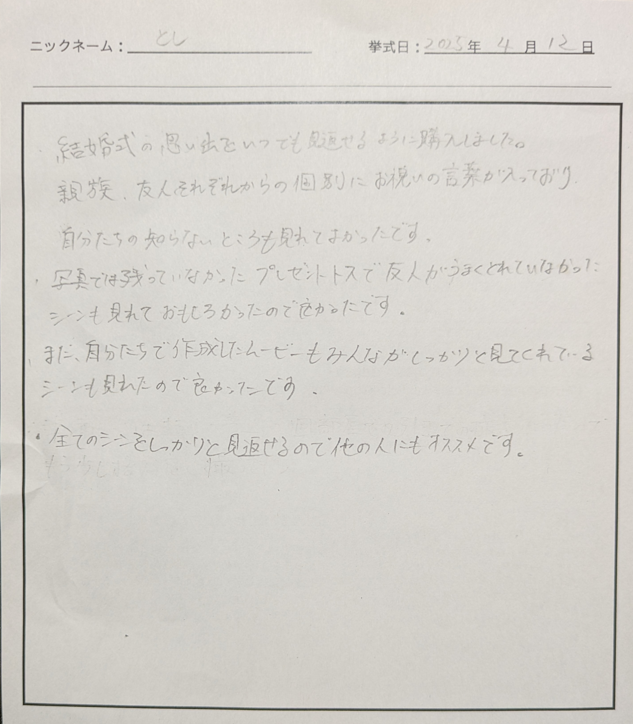 ニックネーム： とし 挙式日：2025年 4月 12日
・結婚式の思い出をいつでも見返せるように購入しました。
親族、友人それぞれからの個別にお祝いの言葉が入っており、
自分たちの知らないところも見れてよかったです。
・写真では残っていなかったプレゼントトスで友人がうまくとれていなかった
シーンも見れておもしろかったので良かったです。
また、自分たちで作成したムービーもみんながしっかりと見てくれている
シーンも見れたので良かったです。
・全てのシーンをしっかりと見返せるので他の人にもオススメです。